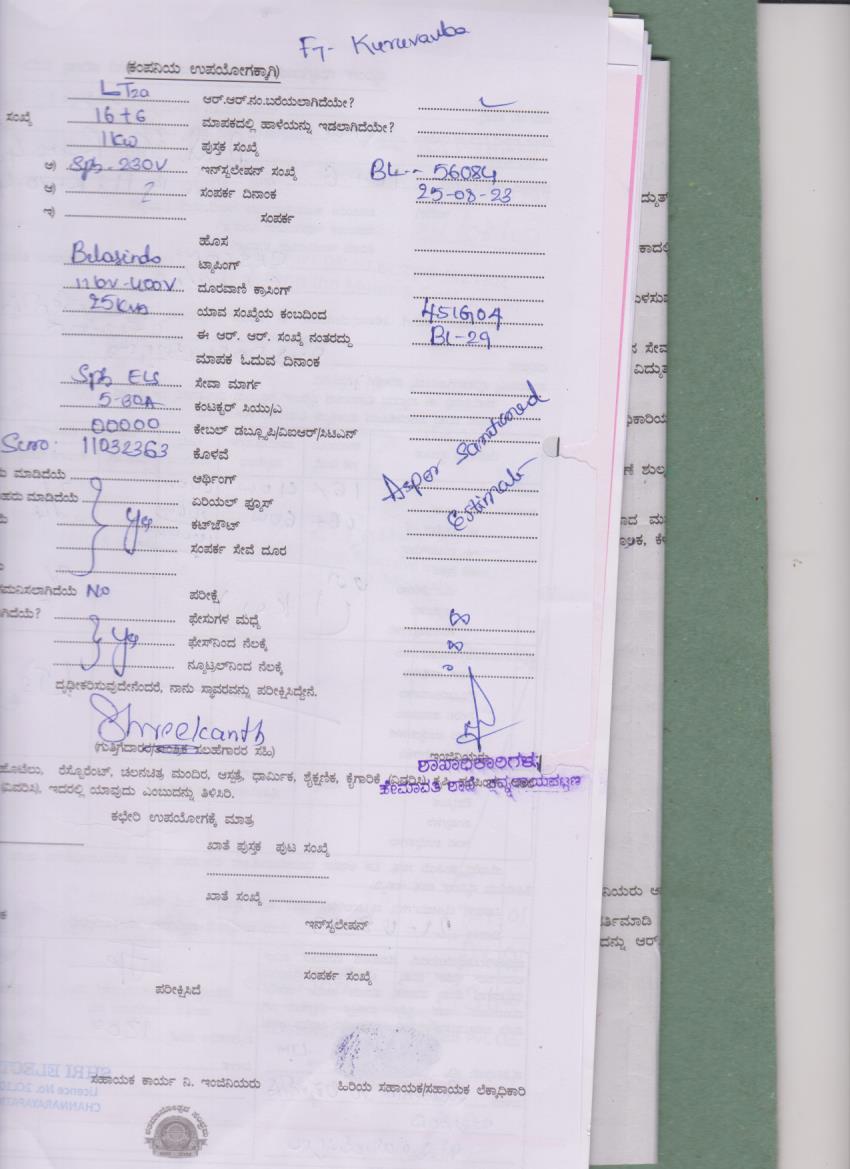 F7- Kuruvanka
(ಕಂಪನಿಯ ಉಪಯೋಗಕ್ಕಾಗಿ)
LT2a ಆರ್.ಆರ್.ನಂ.ಬರೆಯಲಾಗಿದೆಯೇ?
ಸಂಖ್ಯೆ 16+6 ಮಾಪಕದಲ್ಲಿ ಹಾಳೆಯನ್ನು ಇಡಲಾಗಿದೆಯೇ?
1KW ಪುಸ್ತಕ ಸಂಖ್ಯೆ
ಅ) Sph-230V ಇನ್‌ಸ್ಟಲೇಷನ್ ಸಂಖ್ಯೆ BL-- 56084
ಆ) 2 ಸಂಪರ್ಕ ದಿನಾಂಕ 25-08-23
ಇ) ಸಂಪರ್ಕ
ಹೊಸ
ಟ್ಯಾಪಿಂಗ್
11kV-400V ದೂರವಾಣಿ ಕ್ರಾಸಿಂಗ್
25KVA ಯಾವ ಸಂಖ್ಯೆಯ ಕಂಬದಿಂದ 451G04
ಈ ಆರ್. ಆರ್. ಸಂಖ್ಯೆ ನಂತರದ್ದು BL-29
ಮಾಪಕ ಓದುವ ದಿನಾಂಕ
Sph ಸೇವಾ ಮಾರ್ಗ
5-30A ಕಂಟಕ್ಟರ್ ಸಿಯು/ಎ
00000 ಕೇಬಲ್ ಡಬ್ಲ್ಯೂಪಿ/ವಿಐಆರ್/ಸಿಟಿಎನ್
Slno: 11032363 ಕೊಳವೆ
ಮಾಡಿದೆಯೆ ಆರ್ಥಿಂಗ್ Asper Sanctioned
ಮಾಡಿದೆಯೆ ಏರಿಯಲ್ ಫ್ಯೂಸ್ Estimate
Yes ಕಟ್‌ಔಟ್
ಸಂಪರ್ಕ ಸೇವೆ ದೂರ
ಮನಿಸಲಾಗಿದೆಯೆ No ಪರೀಕ್ಷೆ
ಗಿದೆಯೇ? ಫೇಸುಗಳ ಮಧ್ಯೆ ∞
Yes ಫೇಸ್‌ನಿಂದ ನೆಲಕ್ಕೆ ∞
ನ್ಯೂಟ್ರಲ್‌ನಿಂದ ನೆಲಕ್ಕೆ
ದೃಢೀಕರಿಸುವುದೇನೆಂದರೆ, ನಾನು ಸ್ಥಾವರವನ್ನು ಪರೀಕ್ಷಿಸಿದ್ದೇನೆ.
Shreekanth
(ಗುತ್ತಿಗೆದಾರರ/ತಾಂತ್ರಿಕ ಸಲಹೆಗಾರರ ಸಹಿ)
ಶಾಖಾಧಿಕಾರಿಗಳು
ಹೋಟೆಲು, ರೆಸ್ಟೋರೆಂಟ್, ಚಲನಚಿತ್ರ ಮಂದಿರ, ಆಸ್ಪತ್ರೆ, ಧಾರ್ಮಿಕ, ಶೈಕ್ಷಣಿಕ, ಕೈಗಾರಿಕೆ
(ವಿವರಿಸಿ). ಇದರಲ್ಲಿ ಯಾವುದು ಎಂಬುದನ್ನು ತಿಳಿಸಿರಿ.
ಕಛೇರಿ ಉಪಯೋಗಕ್ಕೆ ಮಾತ್ರ
ಖಾತೆ ಪುಸ್ತಕ ಪುಟ ಸಂಖ್ಯೆ
ಖಾತೆ ಸಂಖ್ಯೆ
ಇನ್‌ಸ್ಟಲೇಷನ್
ಸಂಪರ್ಕ ಸಂಖ್ಯೆ
ಪರೀಕ್ಷಿಸಿದೆ
ಸಹಾಯಕ ಕಾರ್ಯ ನಿ. ಇಂಜಿನಿಯರು ಹಿರಿಯ ಸಹಾಯಕ/ಸಹಾಯಕ ಲೆಕ್ಕಾಧಿಕಾರಿ